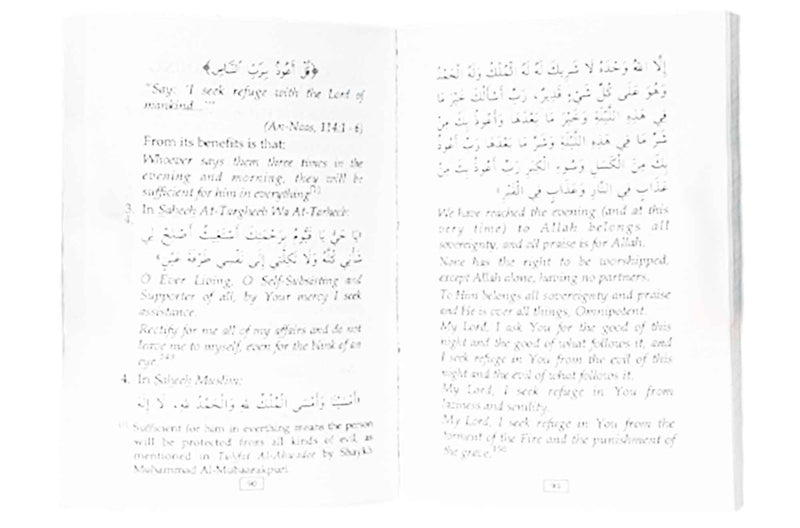 ﴿قُلْ أَعُوذُ بِرَبِّ النَّاسِ﴾
"Say: 'I seek refuge with the Lord of
mankind...'"
(An-Naas, 114:1 - 6)
From its benefits is that:
Whoever says them three times in the
evening and morning, they will be
sufficient for him in everything.[1]
3. In Saheeh At-Targheeb Wa At-Tarheeb:
«يَا حَيُّ يَا قَيُّومُ بِرَحْمَتِكَ أَسْتَغِيثُ أَصْلِحْ لِي
شَأْنِي كُلَّهُ وَلَا تَكِلْنِي إِلَى نَفْسِي طَرْفَةَ عَيْنٍ»
O Ever Living, O Self-Subsisting and
Supporter of all, by Your mercy I seek
assistance.
Rectify for me all of my affairs and do not
leave me to myself, even for the blink of an
eye.
4. In Saheeh Muslim:
«أَمْسَيْنَا وَأَمْسَى الْمُلْكُ لِلَّهِ وَالْحَمْدُ لِلَّهِ، لَا إِلَهَ
Sufficient for him in everthing means the person
will be protected from all kinds of evil, as
mentioned in Tuhfat Al-Ahwadee by Shaykh
Muhammad Al-Mubaarakpuri
90
إِلَّا اللهُ وَحْدَهُ لَا شَرِيكَ لَهُ لَهُ الْمُلْكُ وَلَهُ الْحَمْدُ
وَهُوَ عَلَى كُلِّ شَيْءٍ قَدِيرٌ، رَبِّ أَسْأَلُكَ خَيْرَ مَا
فِي هَذِهِ اللَّيْلَةِ وَخَيْرَ مَا بَعْدَهَا وَأَعُوذُ بِكَ مِنْ
شَرِّ مَا فِي هَذِهِ اللَّيْلَةِ وَشَرِّ مَا بَعْدَهَا رَبِّ أَعُوذُ
بِكَ مِنَ الْكَسَلِ وَسُوءِ الْكِبَرِ رَبِّ أَعُوذُ بِكَ مِنْ
عَذَابٍ فِي النَّارِ وَعَذَابٍ فِي الْقَبْرِ»
We have reached the evening (and at this
very time) to Allah belongs all
sovereignty, and all praise is for Allah.
None has the right to be worshipped,
except Allah alone, having no partners.
To Him belongs all sovereignty and praise
and He is over all things, Omnipotent.
My Lord, I ask You for the good of this
night and the good of what follows it, and
I seek refuge in You from the evil of this
night and the evil of what follows it.
My Lord, I seek refuge in You from
laziness and senility.
My Lord, I seek refuge in You from the
torment of the Fire and the punishment of
the grave.